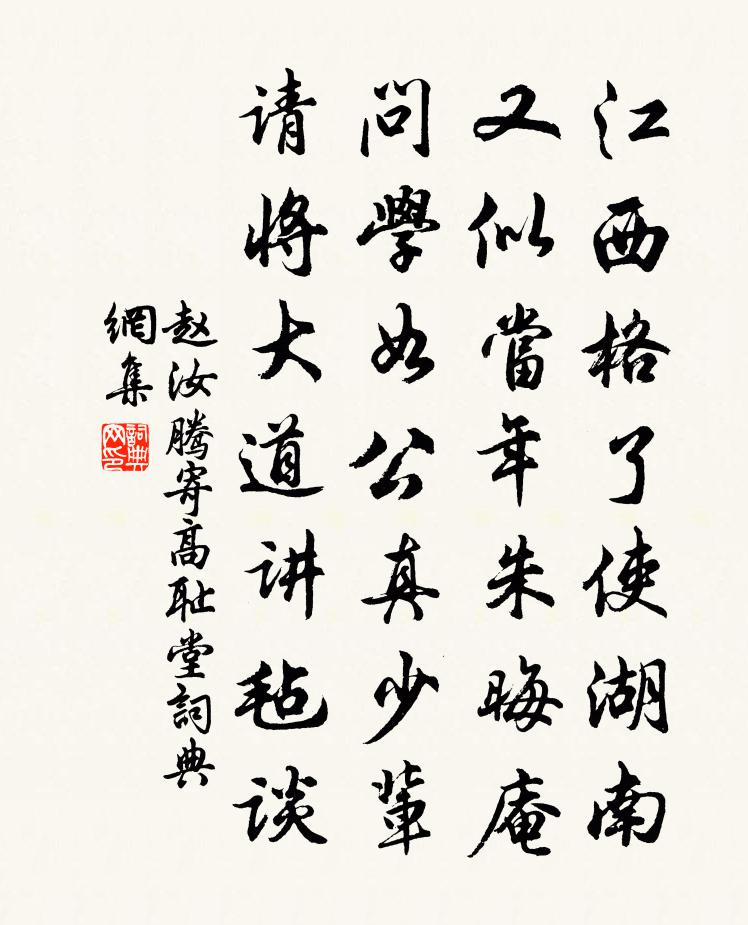 江西格了使湖南
又似當年朱晦庵
問學如公真少輩
请將大道讲毡谈
赵汝腾寄高耻堂詞典
網集
詞典
网印